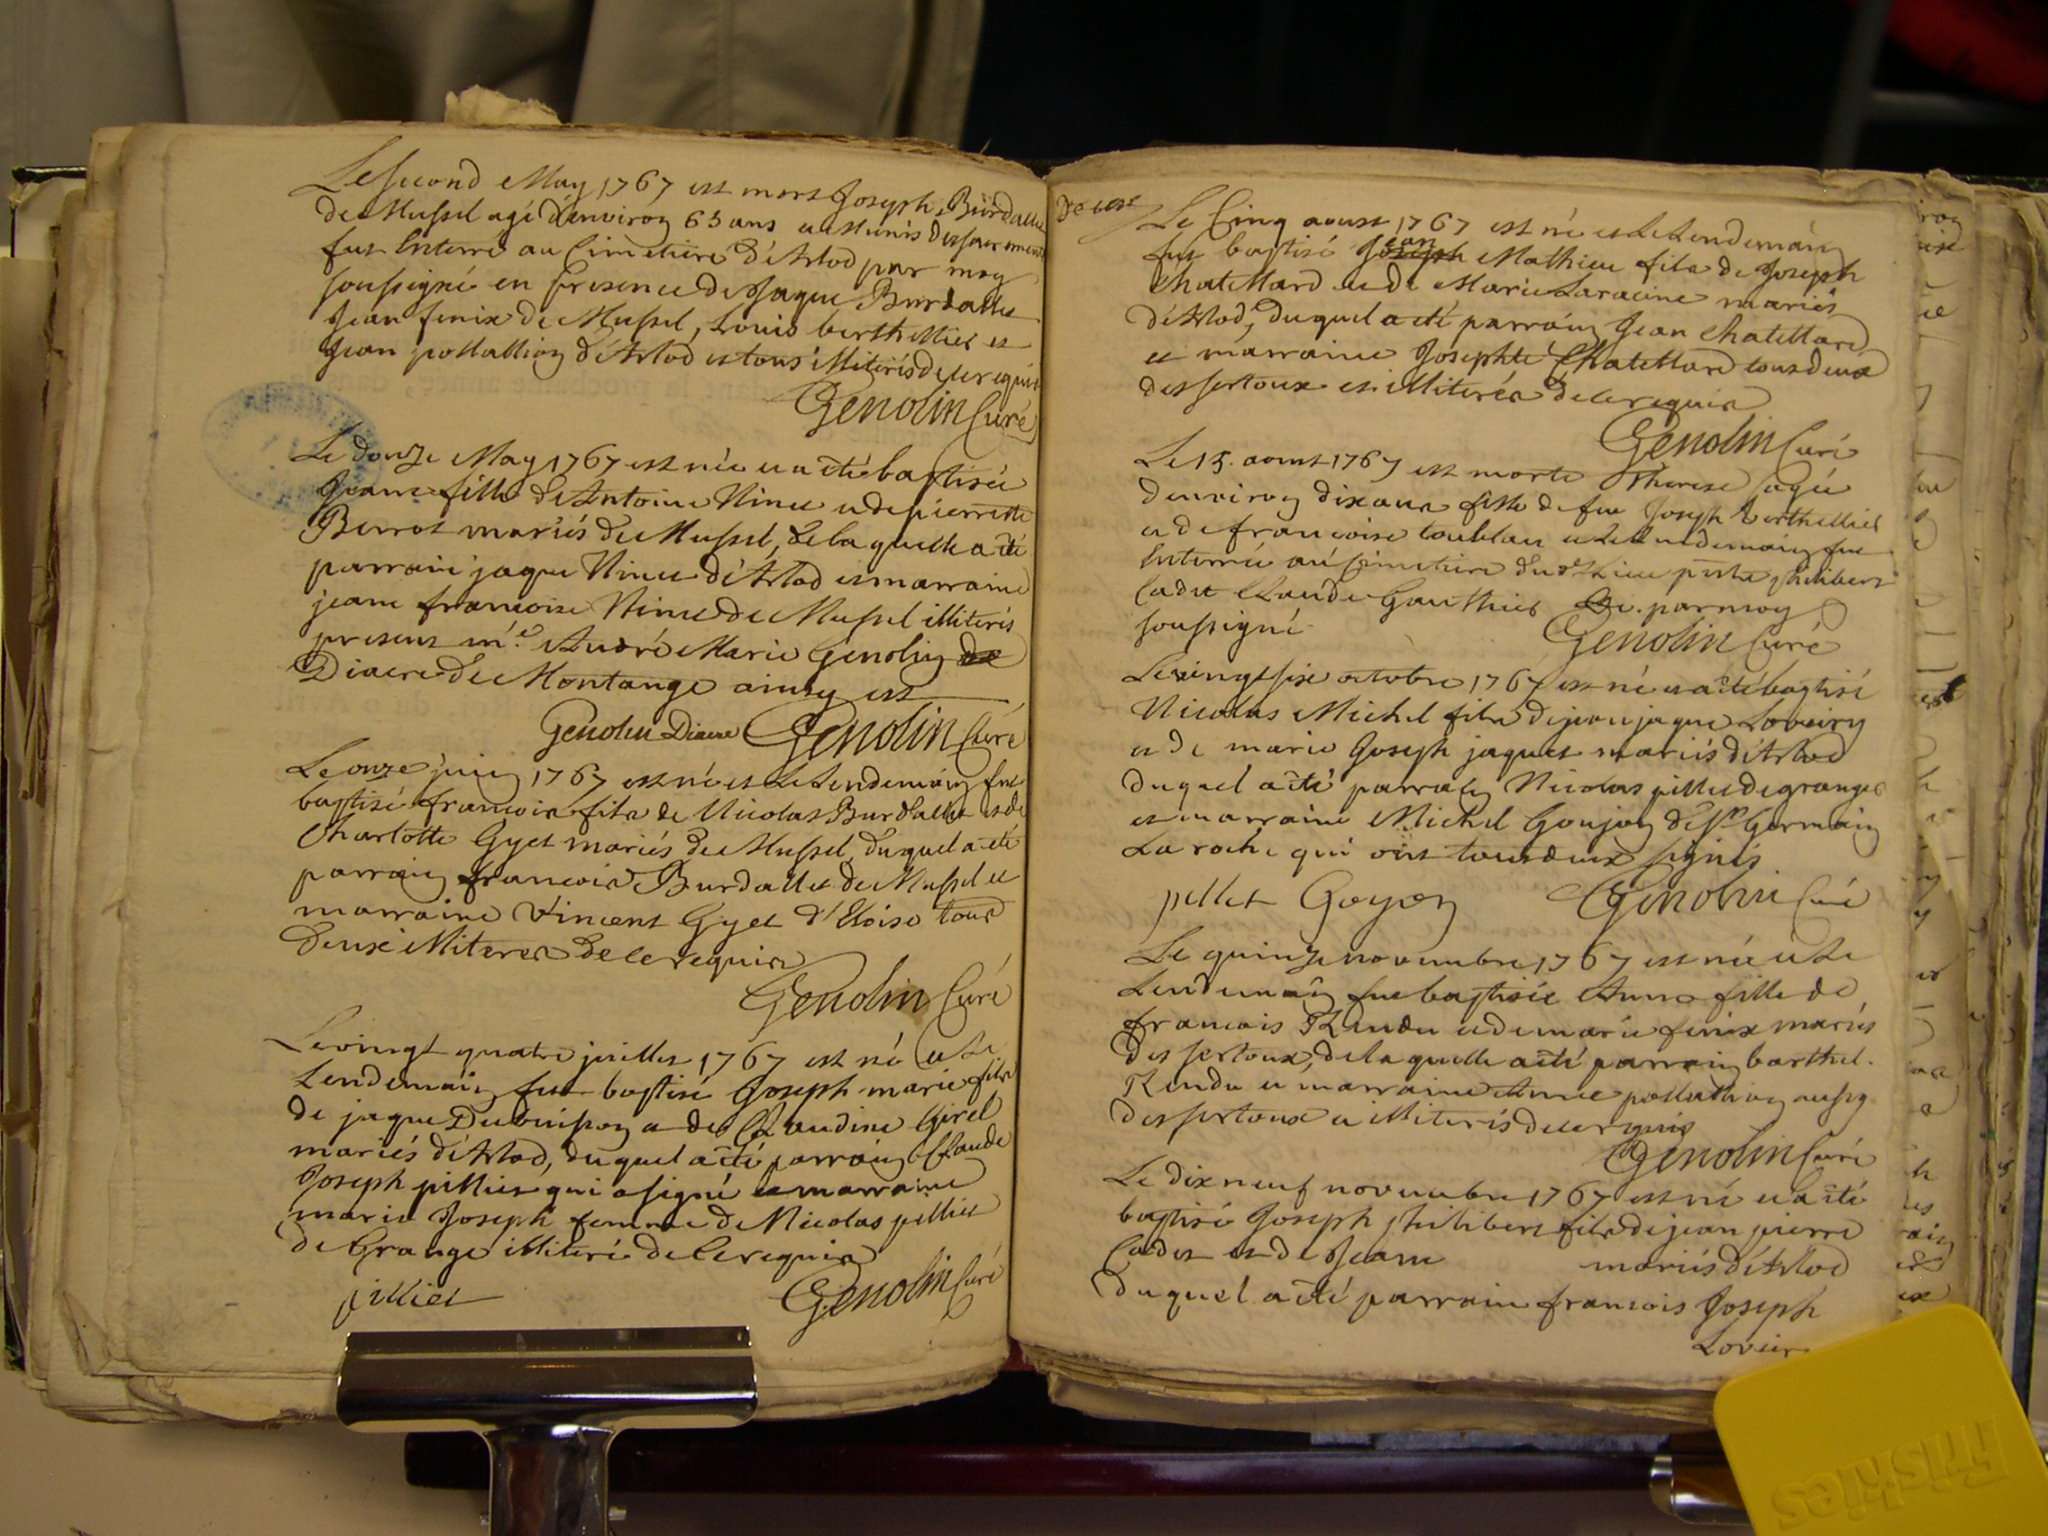 Le second May 1767 est mort Joseph Burdallet
de Mussel agé d'environ 65 ans et munis des sacrements
fut Enterré au Cimetiere d'Arlod par moy
soussigné en presence de Jaque Burdallet
Jean fenix de Mussel, Louis berthellier et
Jean pollallion d'Arlod et tous illiterés de ce requis
Genolin Curé
Le douze May 1767 est née et a eté baptisée
Jeane fille de Antoine Ninet et de pierrette
Berrot mariés de Mussel, de laquelle a eté
parrain jaque Ninet d'Arlod et marraine
jeane francoise Ninet de Mussel illiterés
present mre André Marie Genolin
Diacre de Montange ainsy est
Genolin Diacre Genolin Curé
Le onze juin 1767 est né et le lendemain fut
baptisé francois fils de Nicolas Burdallet et de
Charlotte Gyet mariés de Mussel, duquel a eté
parrain francois Burdallet de Mussel et
marraine Vincent Gyet d'Eloise tous
deux illiteres de ce requis
Genolin Curé
Le vingt quatre juillet 1767 est né et le
Lendemain fut baptisé Joseph marie fils
de jaque Dubuisson et de Claudine Girel
mariés d'Arlod, duquel a eté parrain Claude
Joseph pillier qui a signé et marraine
marie Joseph femme de Nicolas pellier
de Grange illiteré de ce requis
pillier Genolin Curé
Le Cinq aoust 1767 est né et le Lendemain
fut baptisé Jean Mathieu fils de Joseph
Chatellard et de Marie Laracine mariés
d'Arlod, duquel a eté parrain Jean Chatellard
et marraine Josephte Chatellard tous deux
des sertoux et illiterés de ce requis
Genolin Curé
Le 15. aout 1767 est morte Therese agée
denviron dix ans fille de feu Joseph Berthellier
et de francoise toublan et le lendemain fut
Enterrée au Cimetiere du d. Lieu pnts philibert
Cadet Claude Gauthier par moy
soussigné Genolin Curé
Le vingt six octobre 1767 est né et a eté baptisé
Nicolas Michel fils de jean jaque Loveiry
et de marie Joseph jaquet mariés d'Arlod
duquel a eté parrain Nicolas pillet de grange
et marraine Michel Goujon de St Germain
La roche qui ont tous deux signés
pillet Goyon Genolin Curé
Le quinze novembre 1767 est née et le
Lendemain fut baptisée Anne fille de
francois Rendu et de marie fenix mariés
des sertoux, de laquelle a eté parrain barthel.
Rendu et marraine Anne pollathion aussy
des sertoux et illiterés de ce requis
Genolin Curé
Le dix neuf novembre 1767 est né et a eté
baptisé Joseph philibert fils de jean pierre
Cadet et de Jeane mariés d'Arlod
duquel a eté parrain francois Joseph
Loveir
Friskies